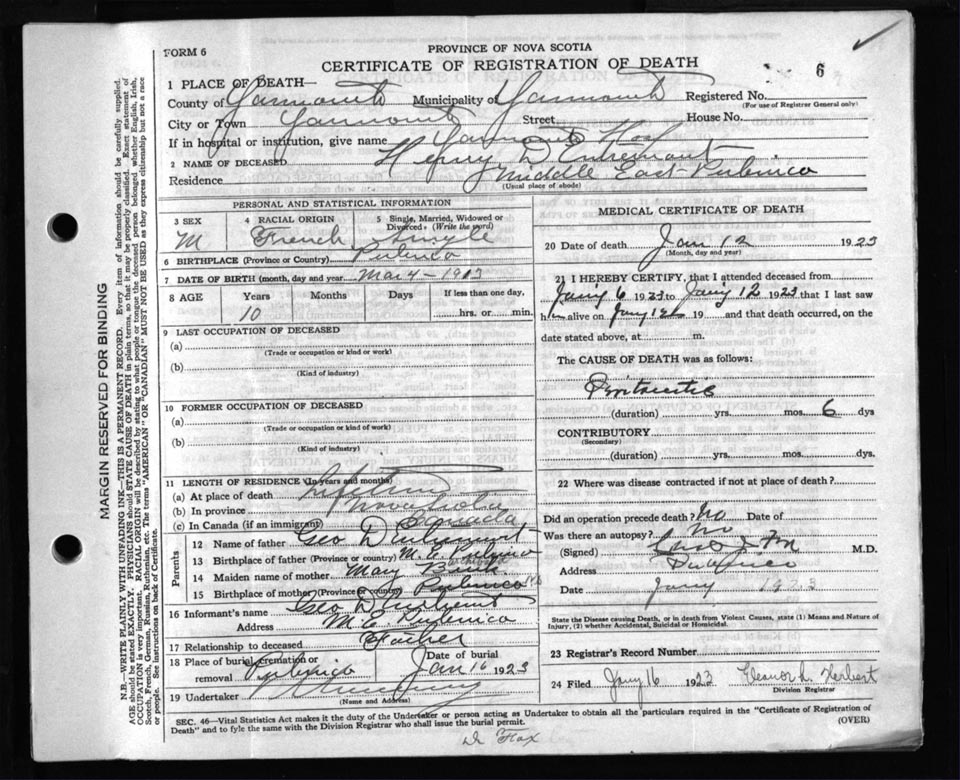 FORM 6
PROVINCE OF NOVA SCOTIA
CERTIFICATE OF REGISTRATION OF DEATH
6
1 PLACE OF DEATH—
County of Yarmouth Municipality of Yarmouth Registered No.
(For use of Registrar General only)
City or Town Yarmouth Street House No.
If in hospital or institution, give name Yarmouth Hosp
2 NAME OF DECEASED Henry D'Entremont
Residence Middle East Pubnico
(Usual place of abode)
PERSONAL AND STATISTICAL INFORMATION
3 SEX 4 RACIAL ORIGIN 5 Single, Married, Widowed or Divorced (Write the word)
M French Single
6 BIRTHPLACE (Province or Country) Pubnico
7 DATE OF BIRTH (month, day and year) Mar 4 - 1913
8 AGE Years Months Days If less than one day,
10 hrs. or min.
9 LAST OCCUPATION OF DECEASED
(a)
(Trade or occupation or kind or work)
(b)
(Kind of industry)
10 FORMER OCCUPATION OF DECEASED
(a)
(Trade or occupation or kind of work)
(b)
(Kind of industry)
11 LENGTH OF RESIDENCE (In years and months)
(a) At place of death Lifetime
(b) In province Nova Scotia
(c) In Canada (if an immigrant) Canada
Parents
12 Name of father Geo D'Entremont
13 Birthplace of father (Province or country) M. E. Pubnico
14 Maiden name of mother Mary
15 Birthplace of mother (Province or country) Pubnico NS
16 Informant's name Geo D'Entremont
Address M. E. Pubnico
17 Relationship to deceased Father
18 Place of burial, cremation or removal Pubnico Date of burial Jan 16 1923
19 Undertaker
(Name and Address)
MEDICAL CERTIFICATE OF DEATH
20 Date of death Jan 12 1923
(Month, day and year)
21 I HEREBY CERTIFY, that I attended deceased from
Jany 6 1923 to Jany 12 1923 that I last saw
him alive on Jany 12th 19 and that death occurred, on the
date stated above, at m.
The CAUSE OF DEATH was as follows:
(duration) yrs. mos. 6 dys
CONTRIBUTORY
(Secondary)
(duration) yrs. mos. dys.
22 Where was disease contracted if not at place of death?
Did an operation precede death? No Date of
Was there an autopsy? No
(Signed) M.D.
Address Pubnico
Date Jany 1923
State the Disease causing Death, or in death from Violent Causes, state (1) Means and Nature of
Injury, (2) whether Accidental, Suicidal or Homicidal.
23 Registrar's Record Number
24 Filed Jany 16 1923 Eleanor L. Herbert
Division Registrar
SEC. 46—Vital Statistics Act makes it the duty of the Undertaker or person acting as Undertaker to obtain all the particulars required in the "Certificate of Registration of
Death" and to fyle the same with the Division Registrar who shall issue the burial permit. (OVER)
Dr Fox
MARGIN RESERVED FOR BINDING
N.B.—WRITE PLAINLY WITH UNFADING INK—THIS IS A PERMANENT RECORD. Every item of information should be carefully supplied.
AGE should be stated EXACTLY. PHYSICIANS should STATE CAUSE OF DEATH in plain terms, so that it may be properly classified. Exact statement of
OCCUPATION is very important. RACIAL ORIGIN will be described by stating to what people or tongue the deceased person belonged whether English, Irish,
Scotch, French, German, Russian, Ruthenian, etc. The terms "AMERICAN" OR "CANADIAN" MUST NOT BE USED as they express citizenship but not a race
or people. See instructions on back of Certificate.